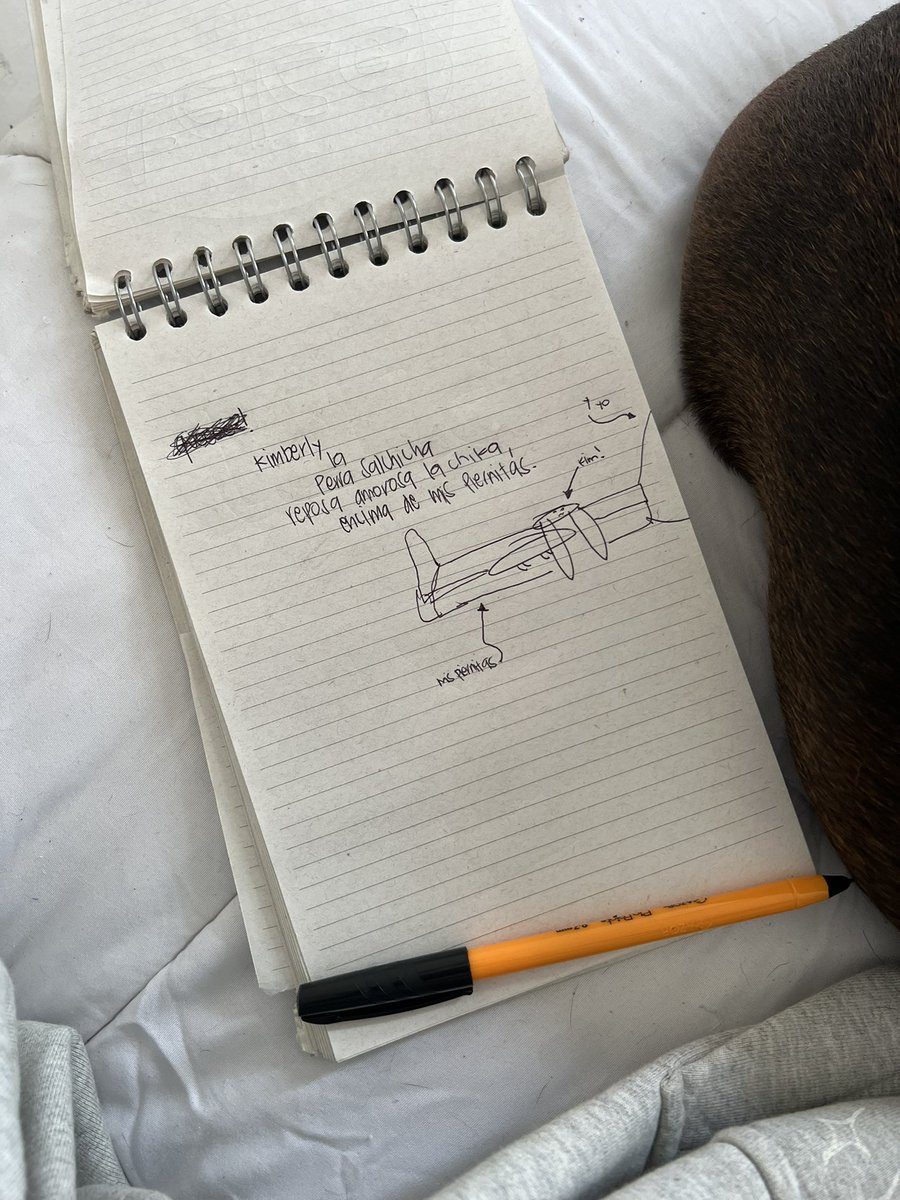 Kimberly la
perra salchicha
reposa amorosa la chika,
encima de mis piernitas.
Y yo
Kim!
mis piernitas